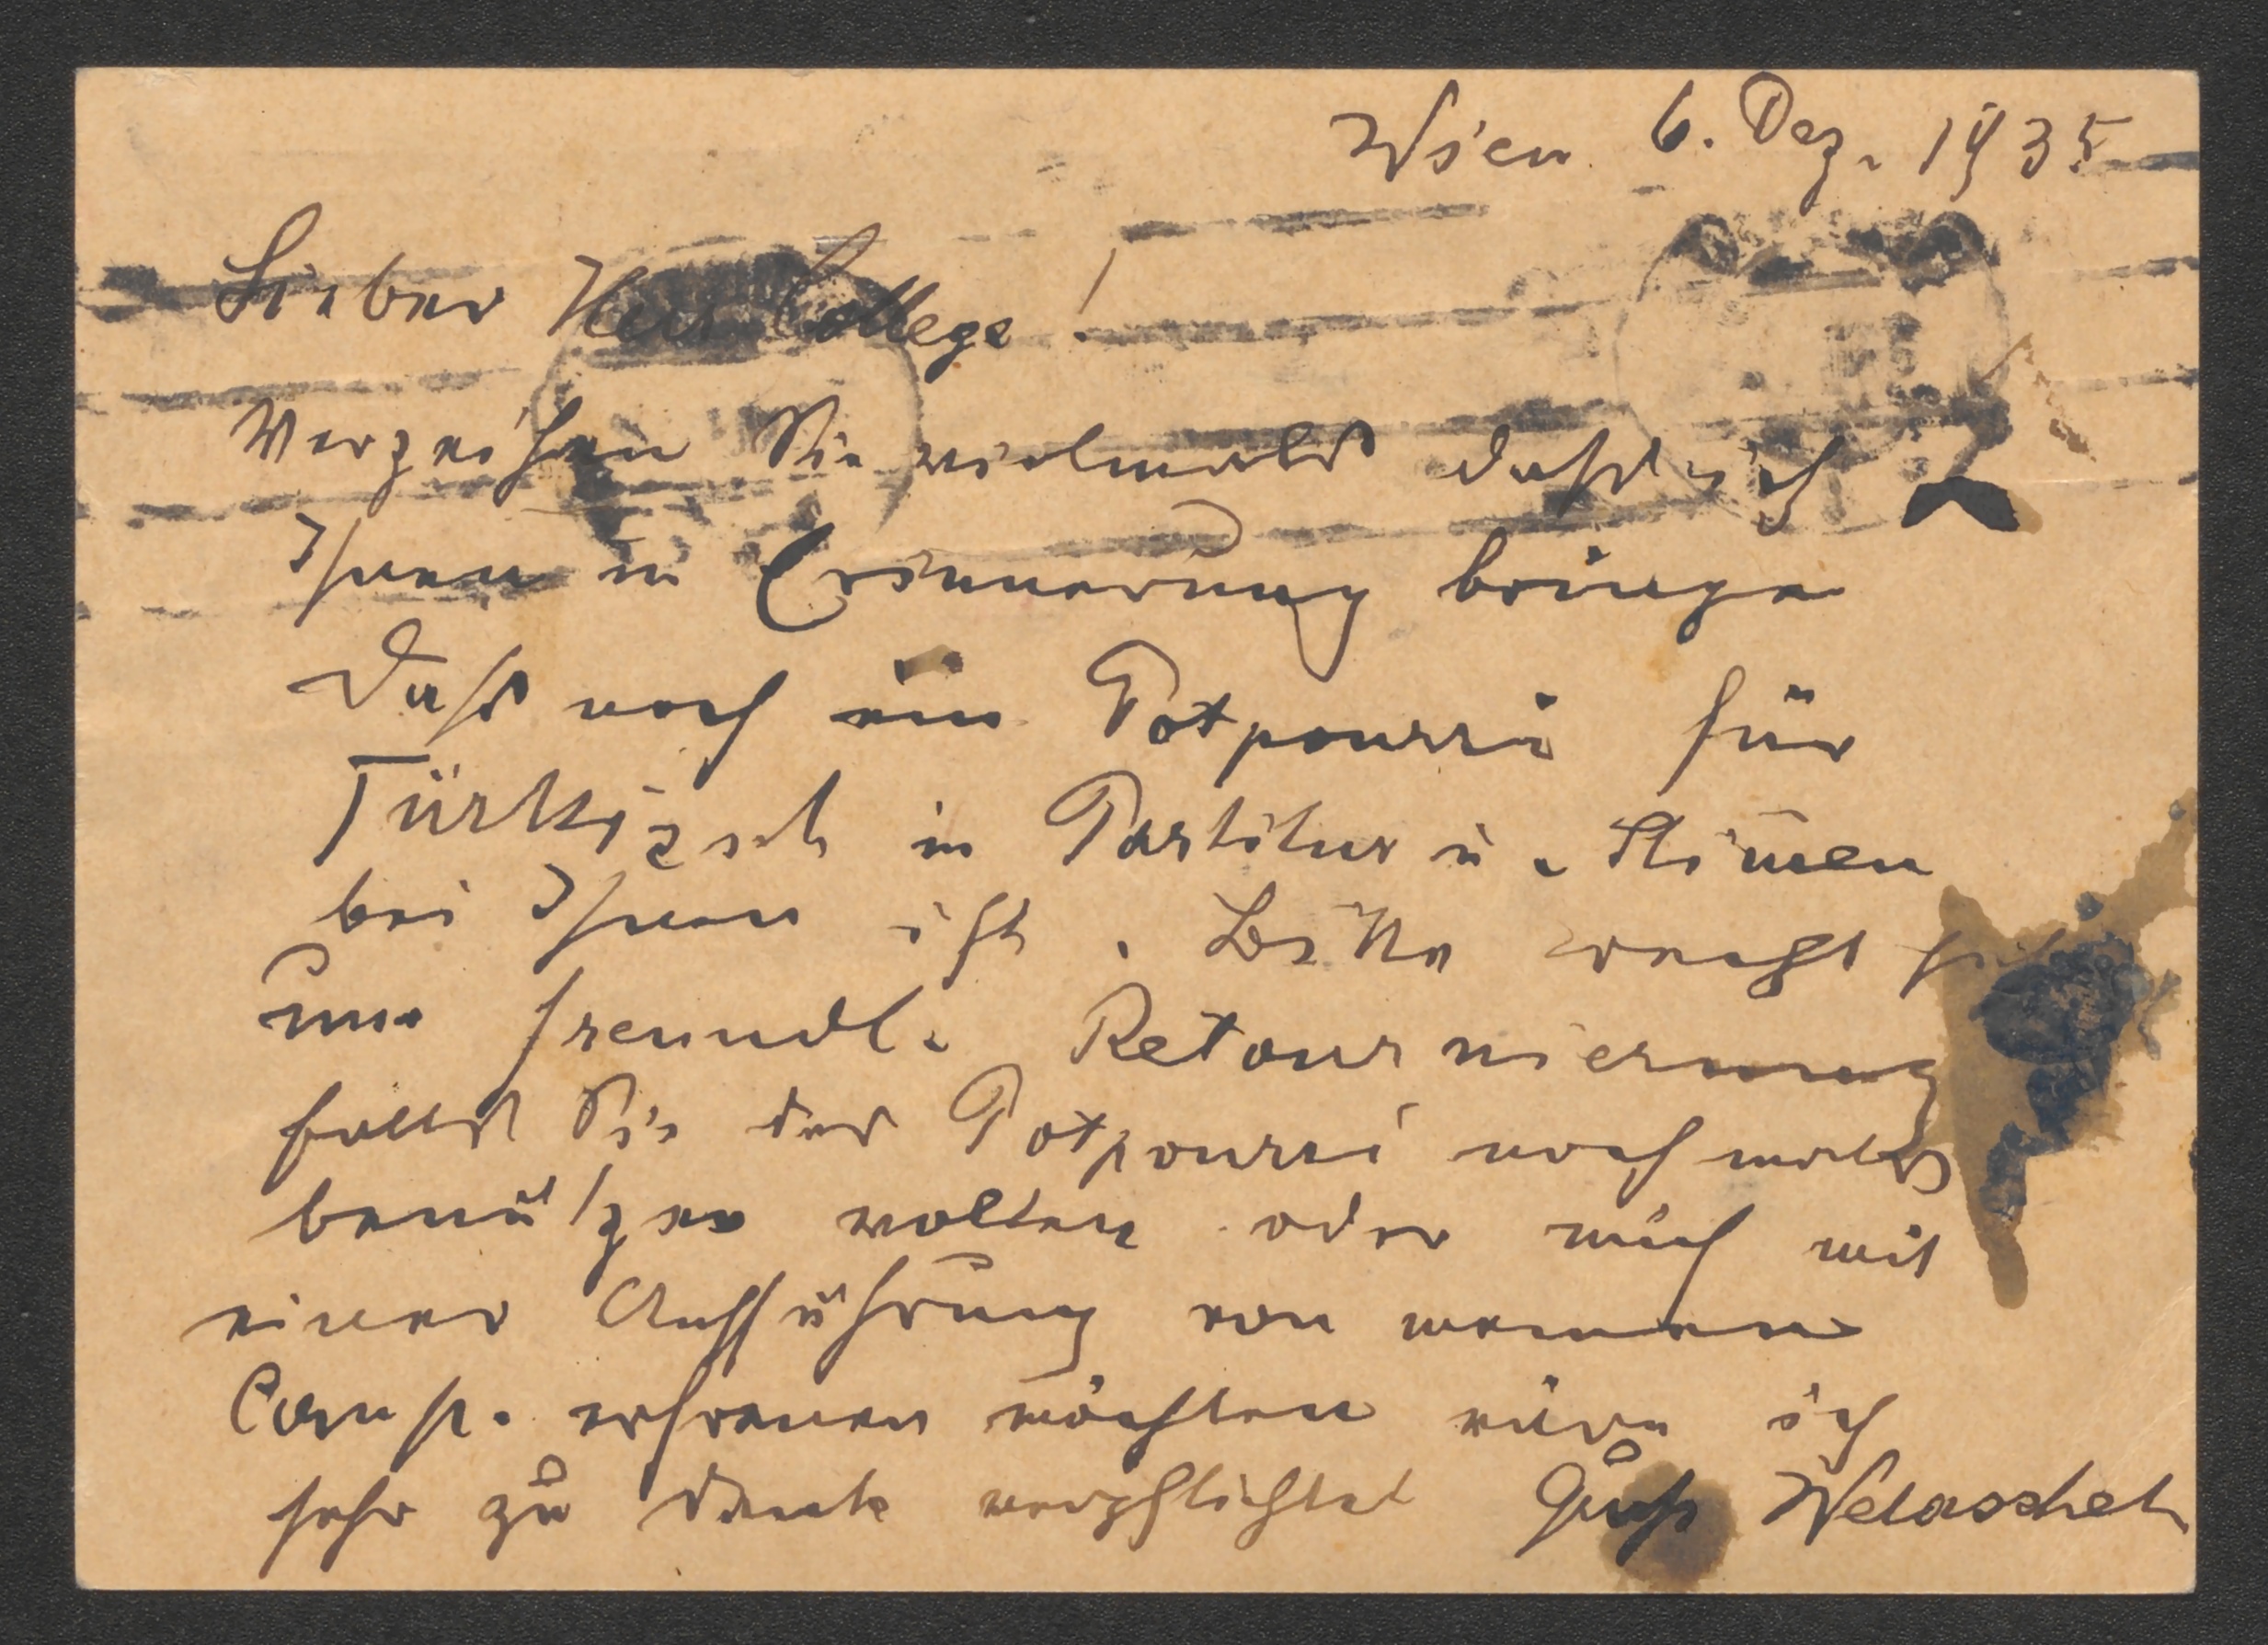 Wien 6. Dez. 1935
Lieber Herr College!
Verzeihen Sie vielmals dass ich
Ihnen in Erinnerung bringe
Dass noch ein Potpourri für
in Partitur u. Stim̅en
bei Ihnen ist. Bitte
um freundl. Retournierung
falls Sie das Potpourri nochmals
benützen wollen oder mich mit
einer Aufführung von meinen
Comp. erfreuen möchten wäre ich
sehr zu Danke verpflichtet Gruß